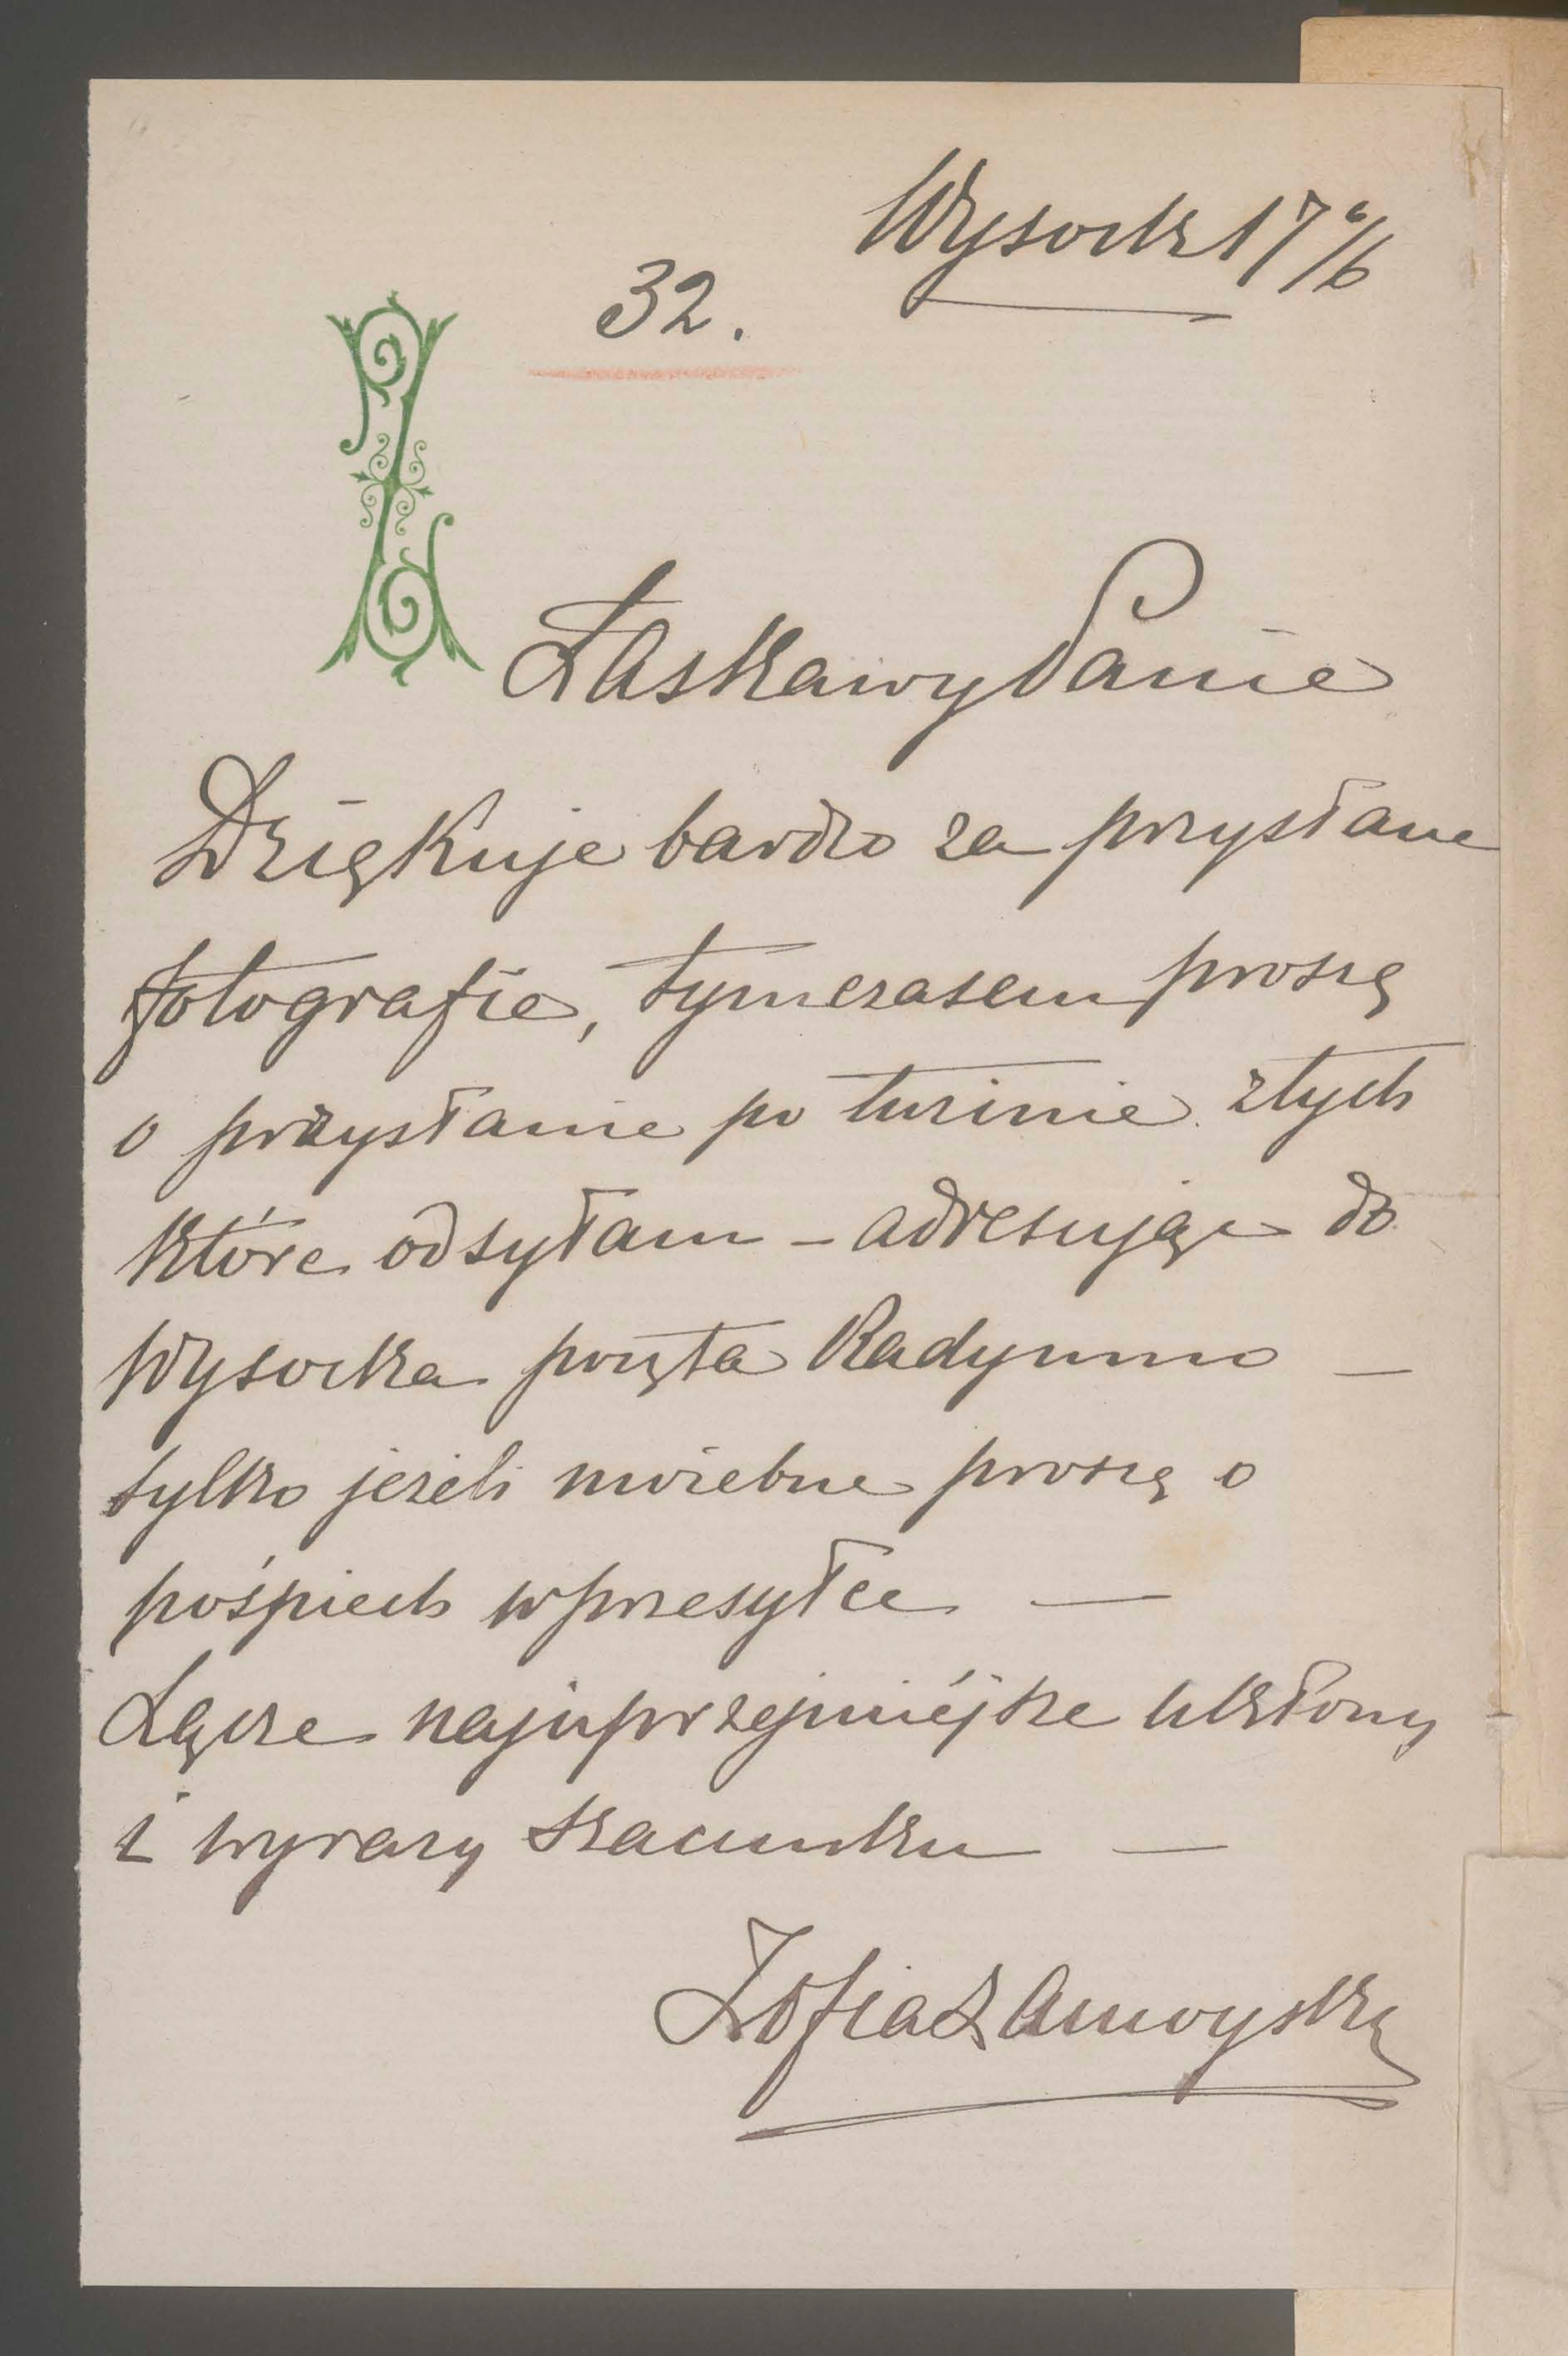 Wysock 17 6/6
32.
Łaskawy Panie
Dziękuje bardzo za przysłane
fotografie, tymczasem proszę
o przysłanie po tuzinie ztych
które odsyłam – adresując do
Wysocka poczta Radymno –
tylko jeżeli możebne proszę o
pośpiech w przesyłce –
Łącze najuprzejmiéjsze ukłony
i wyrazy szacunku –
Zofia Zamoyska